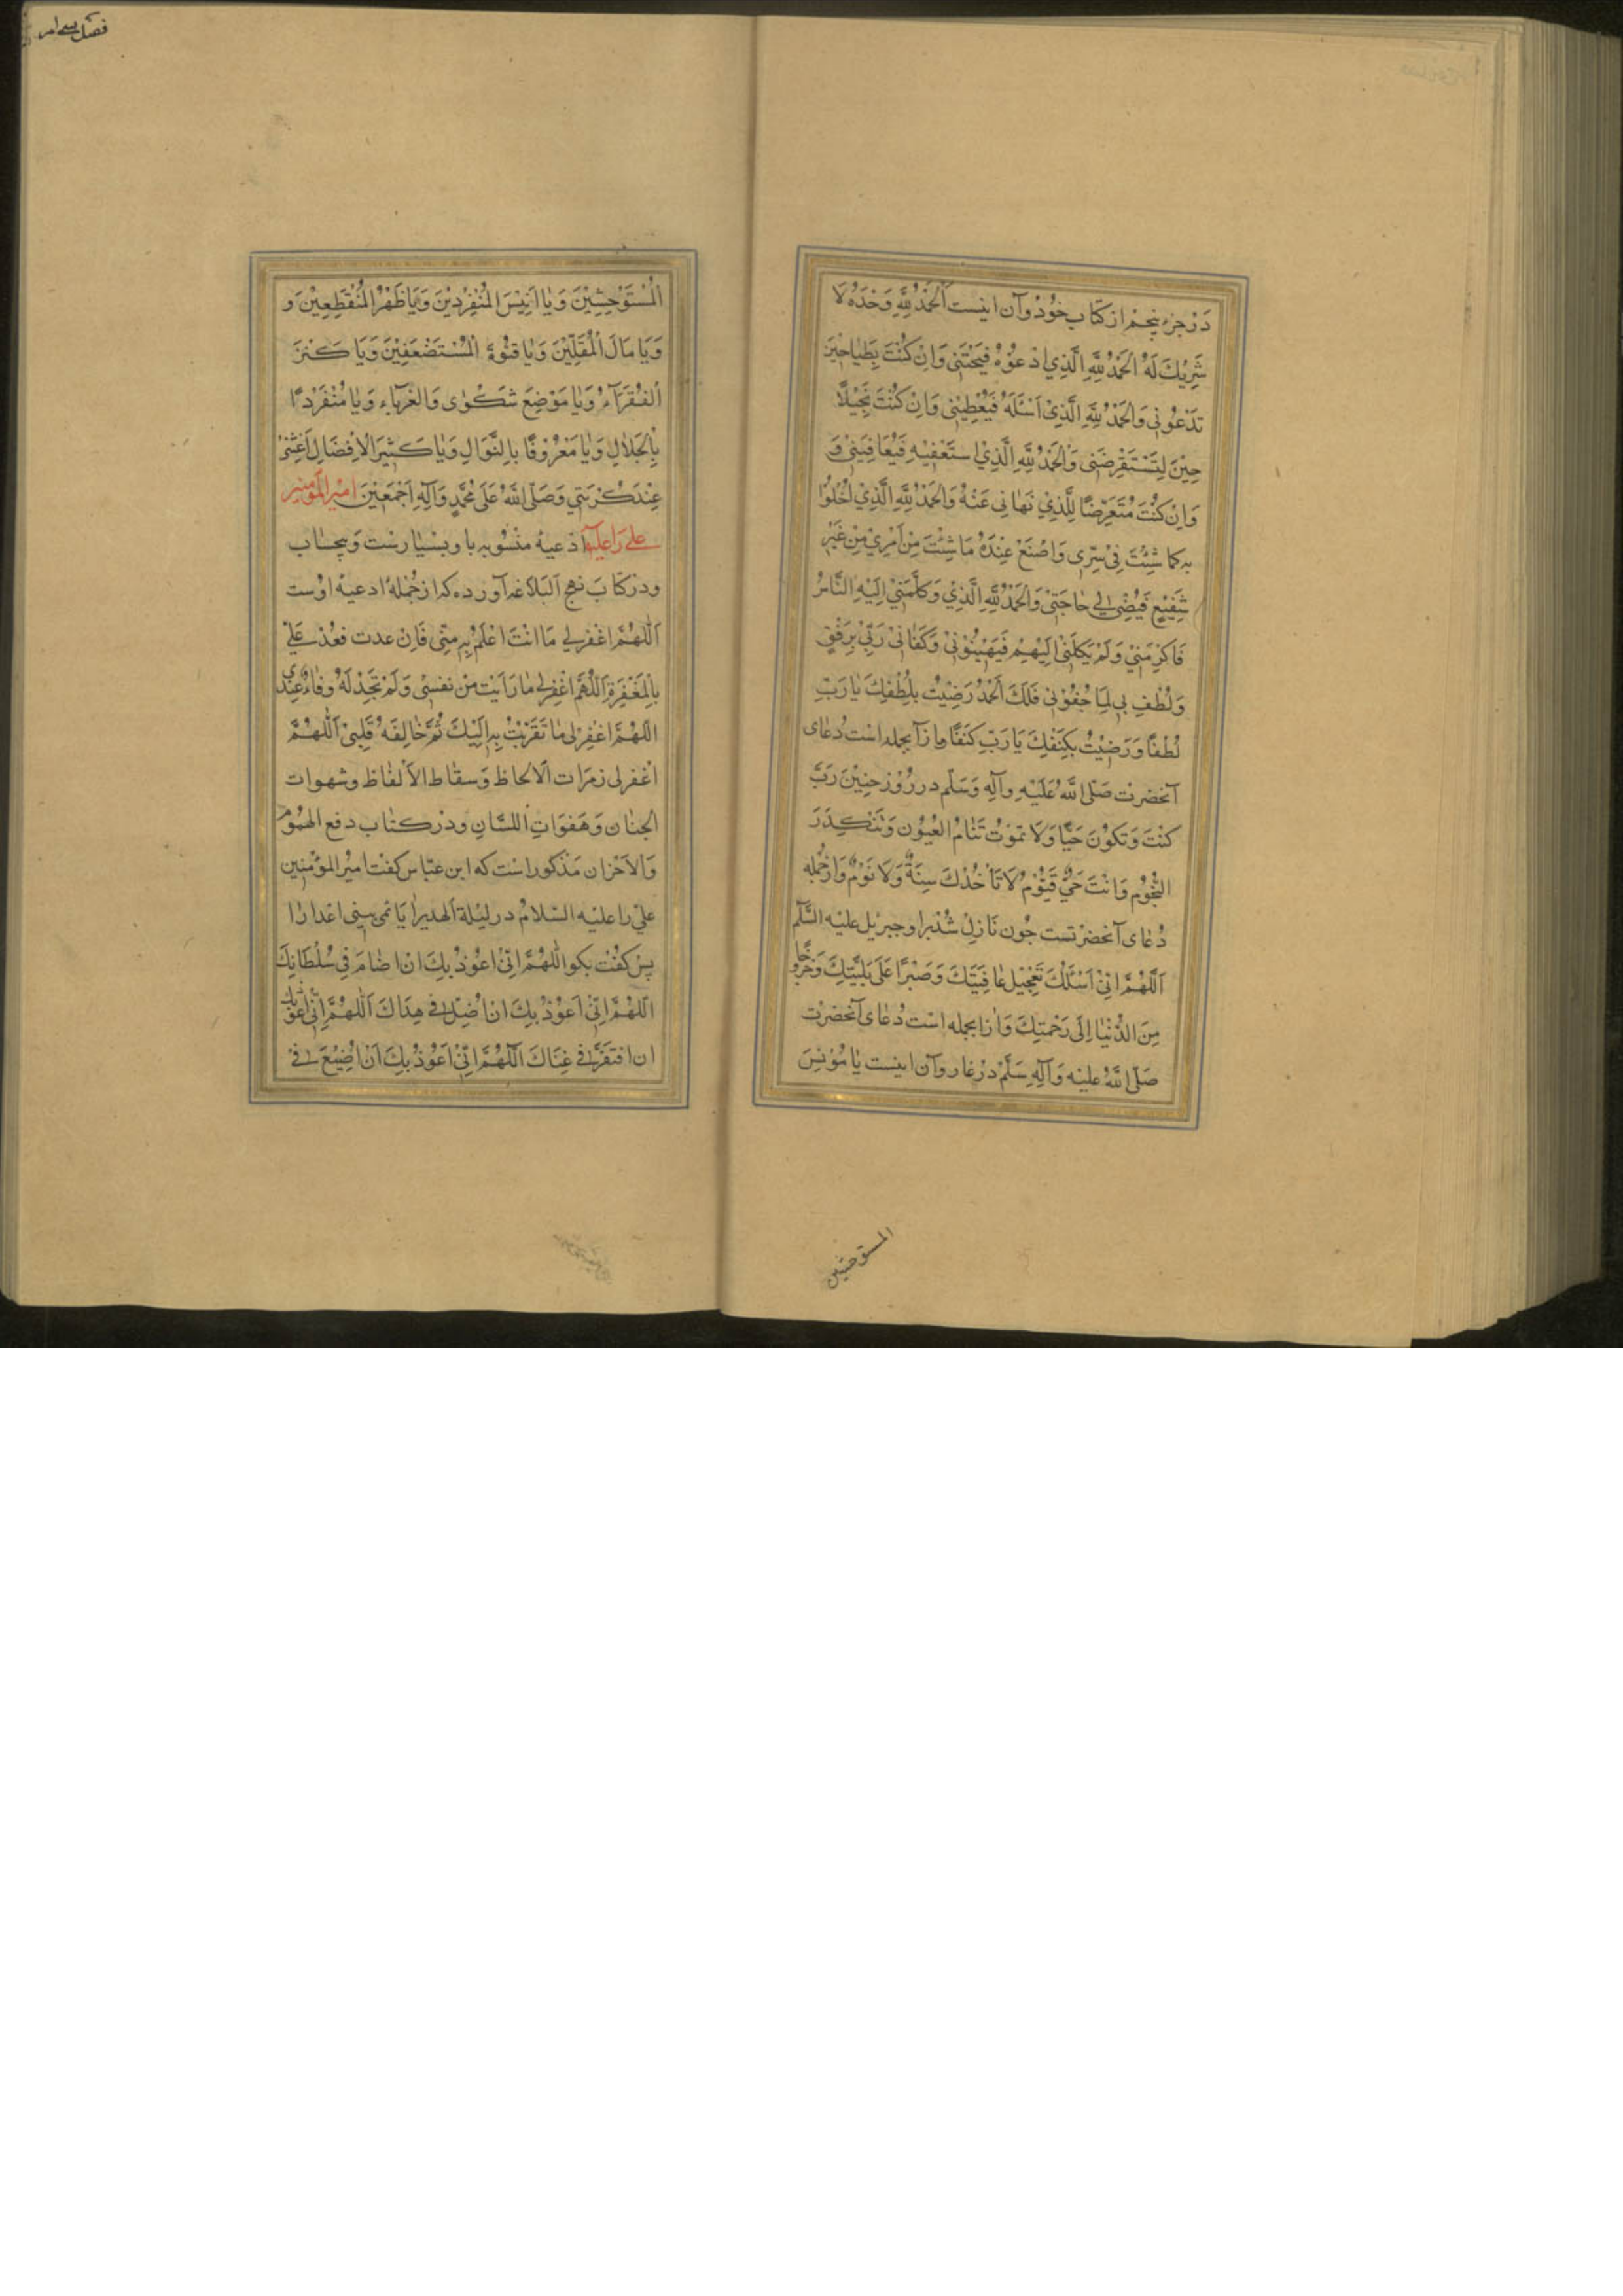 دَرْ جزءِ پنجم از کتاب خُودْ وآن اینست اَلْحَمْدُ لِلّٰهِ وَحْدَهُ لَا
شَرِيْكَ لَهُ اَلْحَمْدُ لِلّٰهِ الَّذِي اَدْعُوْهُ فَيُجِيْبُنِي وَاِنْ كُنْتُ بَطِيْا حِيْنَ
تَدْعُونِي وَالْحَمْدُ لِلّٰهِ الَّذِيْ اَسْئَلُهُ فَيُعْطِيْنِي وَاِنْ كُنْتُ بَخِيْلًا
حِيْنَ لِتَسْتَقْرِضُنِي وَالْحَمْدُ لِلّٰهِ الَّذِيْ استَعْفِيْهِ فَيُعَافِيَنِيْ وَ
وَاِنْ كُنْتُ مُتَعَرِّضًا لِلَّذِيْ نَهَانِي عَنْهُ وَالْحَمْدُ لِلّٰهِ الَّذِيْ اَخْلُوْا
بِهِ كما شِئْتُ فِيْ سِرِّي وَاَصْنَعُ عِنْدَهُ مَا شِئْتُ مِنْ اَمْرِيْ مِنْ غَيْرِ
شَفِيْعٍ فَيُفْضِيْ لِي حَاجَتِيْ وَالْحَمْدُ لِلّٰهِ الَّذِيْ وَكَلَّمَنِيْ اِلَيْهِ النَّاسُ
فَاَكْرَمَنِيْ وَلَمْ يَكِلْنِيْ اِلَيْهِمْ فَيُهِيْنُوْنِيْ وَكَفَانِيْ رَبِّيْ بِرِفْقٍ
وَلُطْفِ بِي لِمَا جُفُوْنِي فَلَكَ اَلْحَمْدُ رَضِيْتُ بِلُطْفِكَ يَا رَبِّ
لُطْفًا وَرَضِيْتُ بِكَنَفِكَ يَا رَبِّ كَنَفًا واز آنجمله است دُعای
آنحضرت صَلَّى اللّٰهُ عَلَيْهِ وآلِهِ وَسَلَّم در رُوْز حنِيْنَ رَبَّ
كنْتَ وَتَكُوْنَ حَيًّا وَلَا تموْتُ تَنَامُ الْعُيُوْن وَتَنْكَدِرَ
النُّجُوْمُ وَاَنْتَ حَيٌّ قَيُّوْمٌ لَا تَاْخُذُكَ سِنَةٌ وَلَا نَوْمٌ وَازجُمله
دُعای آنحضرتست چُون نَازل شُد برا و جبریل علیه السّلم
اَللّٰهُمَّ اِنِّيْ اَسْئَلُكَ تَعْجِيْلَ عَافِيَتِكَ وَصَبْرًا عَلَى بَلِيَّتِكَ وَخُرُوْجًا
مِنَ الدُّنْيَا اِلَى رَحْمَتِكَ وَازانجمله است دُعای آنحضرت
صَلَّى اللّٰهُ عليه وَآلِهِ سَلَّمْ دَرْ غار وآن اینست يَا مُوْنِسَ
المستوحشین
فصل سی امر
اَلْمُسْتَوْحِشِيْنَ وَيَا اَنِيْسَ الْمُنْفَرِدِيْنَ وَيَا ظَهْرَ الْمُنْقَطِعِيْنَ وَ
وَيَا مَالَ الْمُقِلِّيْنَ وَيَا قُوَّةَ الْمُسْتَضْعَفِيْنَ وَيَا كَنْزَ
الْفُقَرَآءِ وَيَا مَوْضِعَ شَكْوٰى وَالْغُرَبَاءِ وَيَا مُنْفَرِدًا
بِالْجَلَالِ وَيَا مَعْرُوْفًا بِالنَّوَالِ وَيَا كَثِيْرَ الْاِفْضَالِ اَغِثْنِيْ
عِنْدَ كُرْبَتِي وَصَلَّى اللّٰهُ عَلَى مُحَمَّدٍ وَآلِهِ اَجْمَعِيْنَ امیر المؤمنین
علی را علیه ادعیهٔ منسوبه با و بسیارست وبیحساب
ودر کتابَ نهج البلاغه آورده که از جُملهٔ ادعیهٔ اوست
اَللّٰهُمَّ اغْفِرْ لِي مَا اَنْتَ اَعْلَمُ بِهِ مِنِّي فَاِنْ عدت فعُدْ عَلَيَّ
بِالْمَغْفِرَةِ اَللّٰهُمَّ اغْفِرْ لِي مَا رَاَيْتَ مِنْ نفسِي وَلَمْ تَجِدْ لَهُ وفَاءً عِنْدِي
اَللّٰهُمَّ اغْفِرْ لِي مَا تَقَرَّبْتُ بِهِ اِلَيْكَ ثُمَّ خَالَفَهُ قَلْبِيْ اَللّٰهُمَّ
اغْفر لی زمرَات الالحاظ وَسقاط الاَلْفاظ وشهوات
الجنان وَهَفَوَاتِ اللسَّانِ ودر کتاب دفع الهمُوْم
وَالاَحْزان مَذکور است که ابن عبّاس کفت امیر المؤمنین
علی را علیه السّلام در لیلة الهدیر ایا نمی بینی اعدا را
پس کفت بکو اللّٰهُمَّ اِنِّيْ اَعُوْذُ بِكَ اَنْ اُضَامَ فِي سُلْطَانِكَ
اَللّٰهُمَّ اِنِّيْ اَعُوْذُ بِكَ اَنْ اَضِلَّ فِي هُدَاكَ اَللّٰهُمَّ اِنِّيْ اَعُوْذُ بِكَ
ان افتَقَرَ فِي غِنَاكَ اَللّٰهُمَّ اِنِّيْ اَعُوْذُ بِكَ اَنْ اُضِيْعَ فِيْ